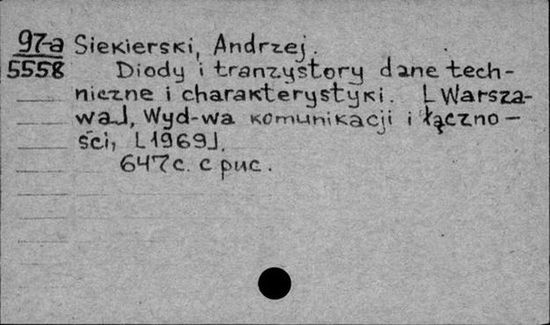 97-a Siekierski, Andrzej.
5558 Diody i tranzystory dane tech-
niczne i charakterystyki. [Warsza-
wa], Wyd-wa komunikacji i łączno-
ści, [1969].
647 c. с рис.